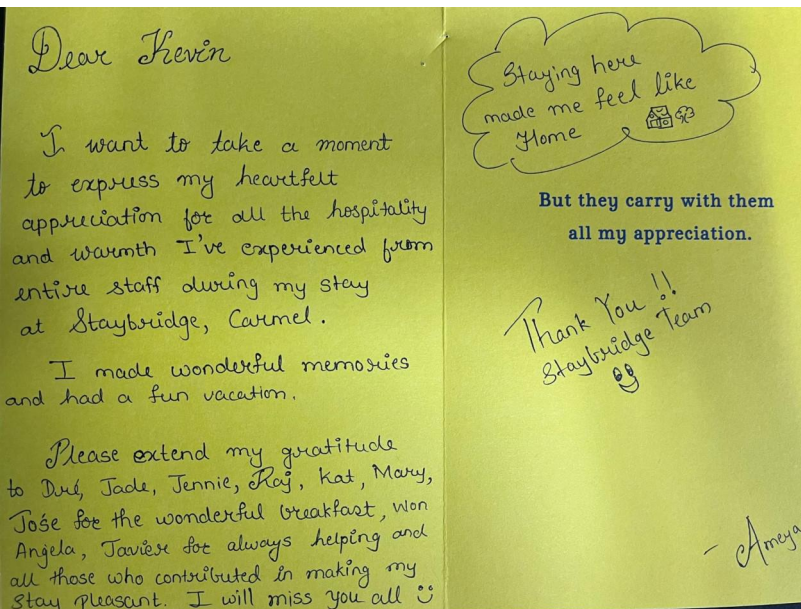 Dear Kevin
I want to take a moment
to express my heartfelt
appreciation for all the hospitality
and warmth I've experienced from
entire staff during my stay
at Staybridge, Carmel.
I made wonderful memories
and had a fun vacation.
Please extend my gratitude
to Dré, Jade, Jennie, Raj, Kat, Mary,
Jośe for the wonderful breakfast, Won
Angela, Javier for always helping and
all those who contributed in making my
Stay pleasant. I will miss you all
Staying here
made me feel like
Home
But they carry with them
all my appreciation.
Thank You !!
Staybridge Team
- Ameya